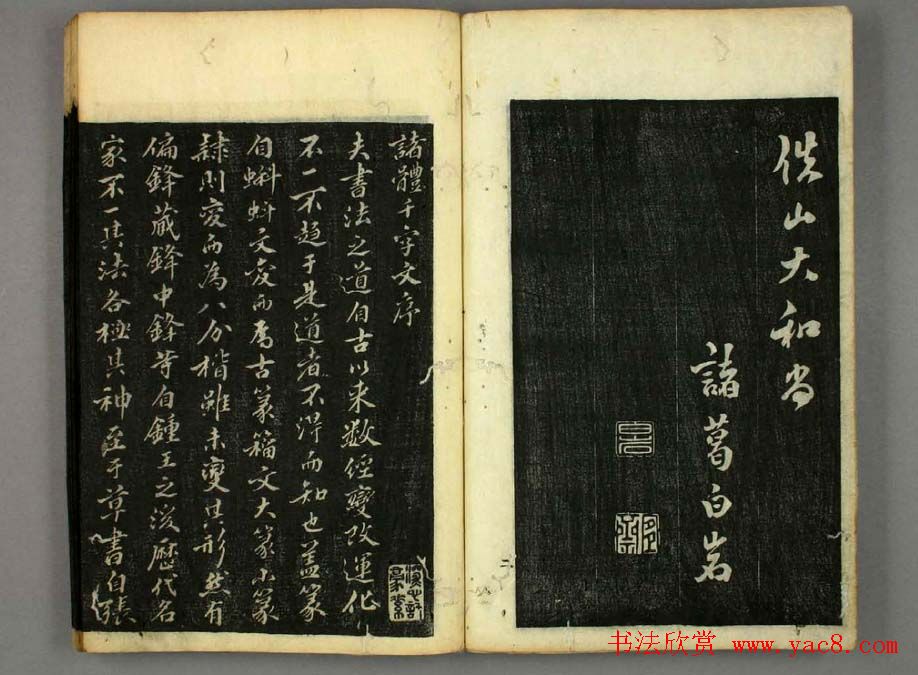 佚山大和尚
諸葛白岩
二
諸體千字文序
夫書法之道自古以来数經變改運化
不一不趍于是道者不得而知也蓋篆
自蝌蚪文変而為古篆籀文大篆小篆
隸則变而為八分楷雖未變其形然有
偏鋒蔵鋒中鋒等自鍾王之後歷代名
家不一其法各極其神至于草書自張
书法欣赏 www.yac8.com